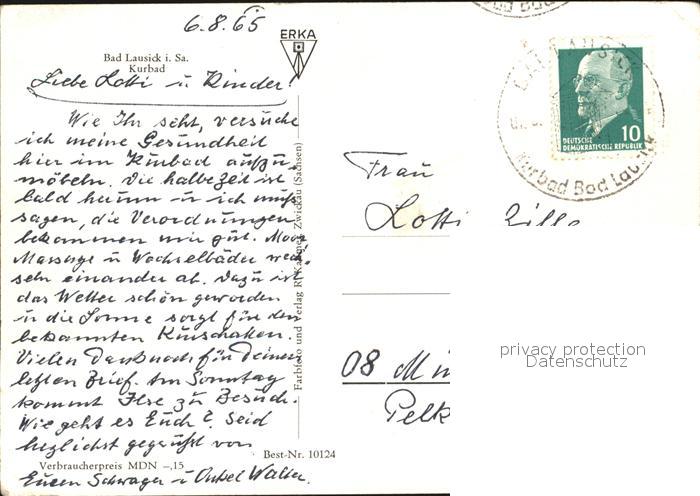 6.8.65
ERKA
Bad Lausick i. Sa.
Kurbad
Liebe Lotti u Kinder!
Wie Ihr seht, versuche
ich meine Gesundheit
hier im Kurbad aufzu
möbeln. Die halbe Zeit ist
bald herum u ich muß
sagen, die Verordnungen
bekommen mir gut. Moor
Massage u Wechselbäder wech
seln einander ab. Dazu ist
das Wetter schön geworden
u die Sonne sorgt für den
bekannten
Vielen Dank noch für Deinen
letzten Brief. Am Sonntag
kommt Ilse zu Besuch.
Wie geht es Euch? Seid
herzlichst gegrüßt von
Eurem Schwager u Onkel Walter.
Verbraucherpreis MDN –,15
Best-Nr. 10124
Farbfoto und Verlag R. Zwickau (Sachsen)
DEUTSCHE
DEMOKRATISCHE REPUBLIK
10
Kurbad Bad Lausick
Frau
Lotti
08
privacy protection
Datenschutz